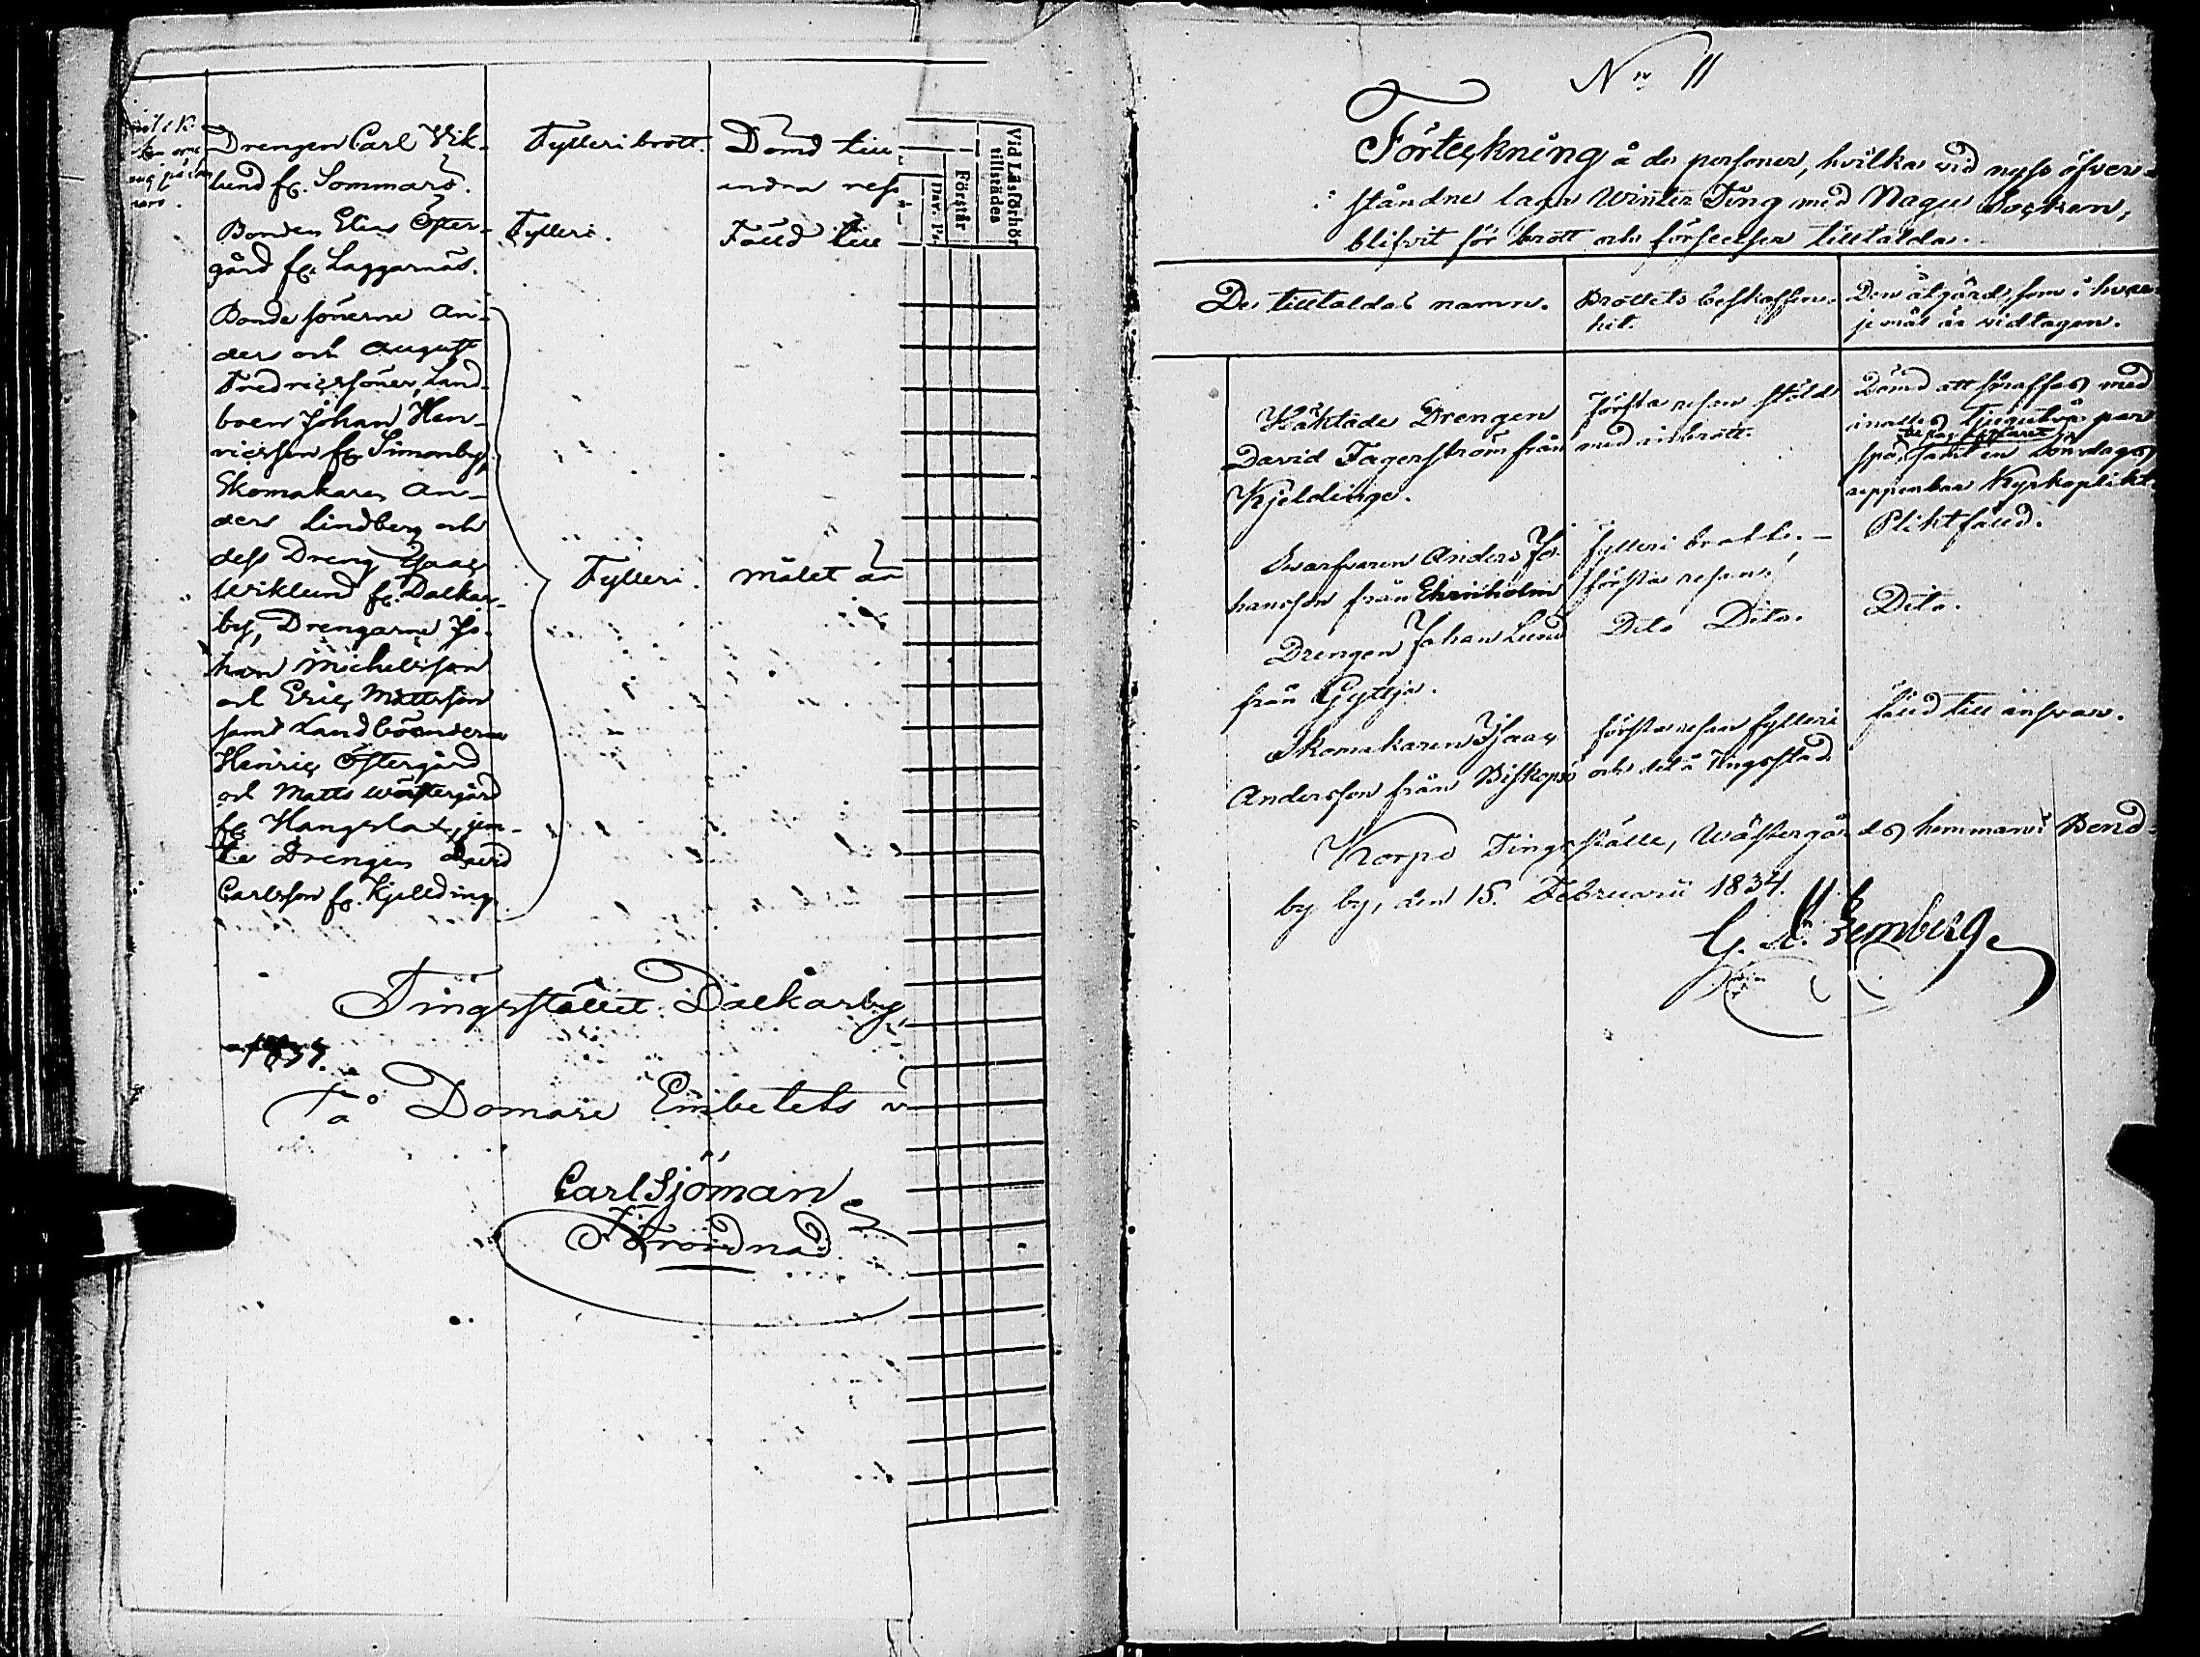 Drengen Carl Vik-
lund fr. Sommarö.
Fylleribrott.
Dömd till
andra resa
Bonden Elias Öster-
gård fr. Laggarnäs.
Fylleri.
Fälld till
Bondesönerne An-
ders och August
Fredricssöner, Land-
boen Johan Hen-
ricsson fr. Simonby,
Skomakaren An-
ders Lindberg och
dess Dreng Isaac
Wiklund fr. Dalkar-
by, Drengarne Jo-
han Michelsson
och Eric Mattsson
samt Landbönderne
Henric Östergård
och Matts Westergård
fr. Hangslax, jem-
te Drengen David
Carlsson fr. Kjelding
Fylleri.
målet
Tingsstället Dalkarby,
1834.
På Domare Embetets
Carl Sjöman
Vid Läsförhör
tillstädes
Förstår
Nr 11
Förteckning å de personer, hvilka vid nyss öfver-
ståndne laga Winter Ting med Nagu Socken,
blifvit för brott och förseelser tilltalda.
De tilltalades namn.
Brottets beskaffen-
het.
Den åtgärd, som i hvar-
je mål är vidtagen.
Häktade Drengen
David Fagerström från
Kjeldinge.
Första resan stöld
med inbrott.
Dömd att straffas med
inalles Tjugutvå par
spö, samt en Söndags
uppenbar Kyrkoplikt.
Swarfvaren Anders Jo-
hansson från Ehrnholm
Fylleri brott.
första resan.
Pliktfälld.
Drengen Johan Lund
från Gyttja.
Dito Dito.
Dito.
Skomakaren Isaac
Andersson från Biskopsö
första resan fylleri
och det å Tingsstad.
fälld till ansvar.
Korpo Tingsställe, Wästergårds hemman i Bend-
by by, den 15. Februarii 1834.